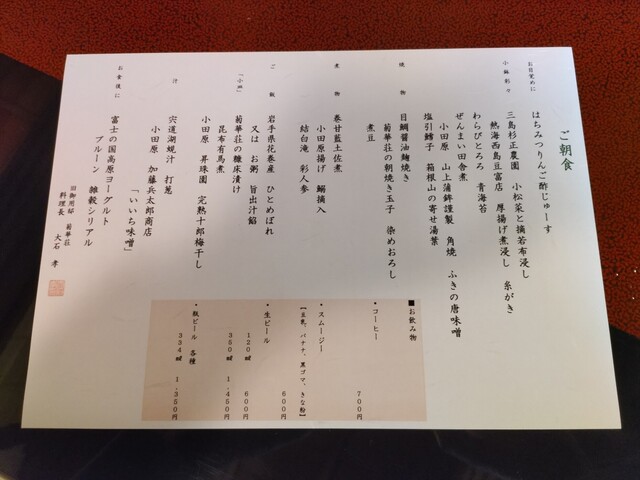 ご朝食
お目覚めに
はちみつりんご酢じゅーす
小鉢彩々
三島杉正農園 小松菜と摘若布浸し
熱海西島豆富店 厚揚げ煮浸し 糸がき
わらびとろろ 青海苔
ぜんまい田舎煮
小田原 山上蒲鉾謹製 角焼 ふきの唐味噌
塩引鱈子 箱根山の寄せ湯葉
焼物
目鯛醤油麹焼き
菊華荘の朝焼き玉子 染めおろし
煮豆
煮物
巻甘藍土佐煮
小田原揚げ 鰯摘入
結白滝 彩人参
ご飯
岩手県花巻産 ひとめぼれ
又は お粥 旨出汁餡
「小皿」
菊華荘の糠床漬け
昆布有馬煮
小田原 昇珠園 完熟十郎梅干し
汁
宍道湖蜆汁 打葱
小田原 加藤兵太郎商店
「いいち味噌」
お食後に
富士の国高原ヨーグルト
プルーン 雑穀シリアル
旧御用邸 菊華荘
料理長 大石 孝
■お飲み物
・コーヒー 700円
・スムージー
【豆乳、バナナ、黒ゴマ、きな粉】 600円
・生ビール
120㎖ 600円
350㎖ 1,450円
・瓶ビール 各種
334㎖ 1,350円